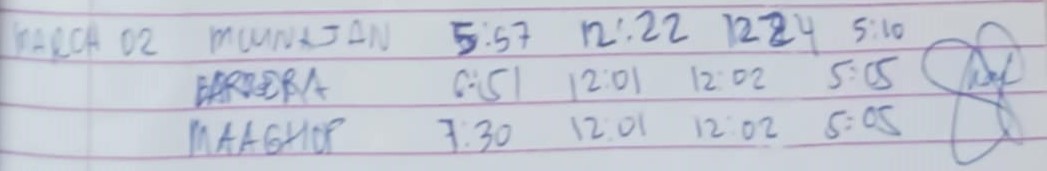 MARCH 02 MUUNAJAN 5:57 12:22 12 24 5:10
BARRERA 6:51 12:01 12:02 5:05
MAAGHOP 7:30 12:01 12:02 5:05